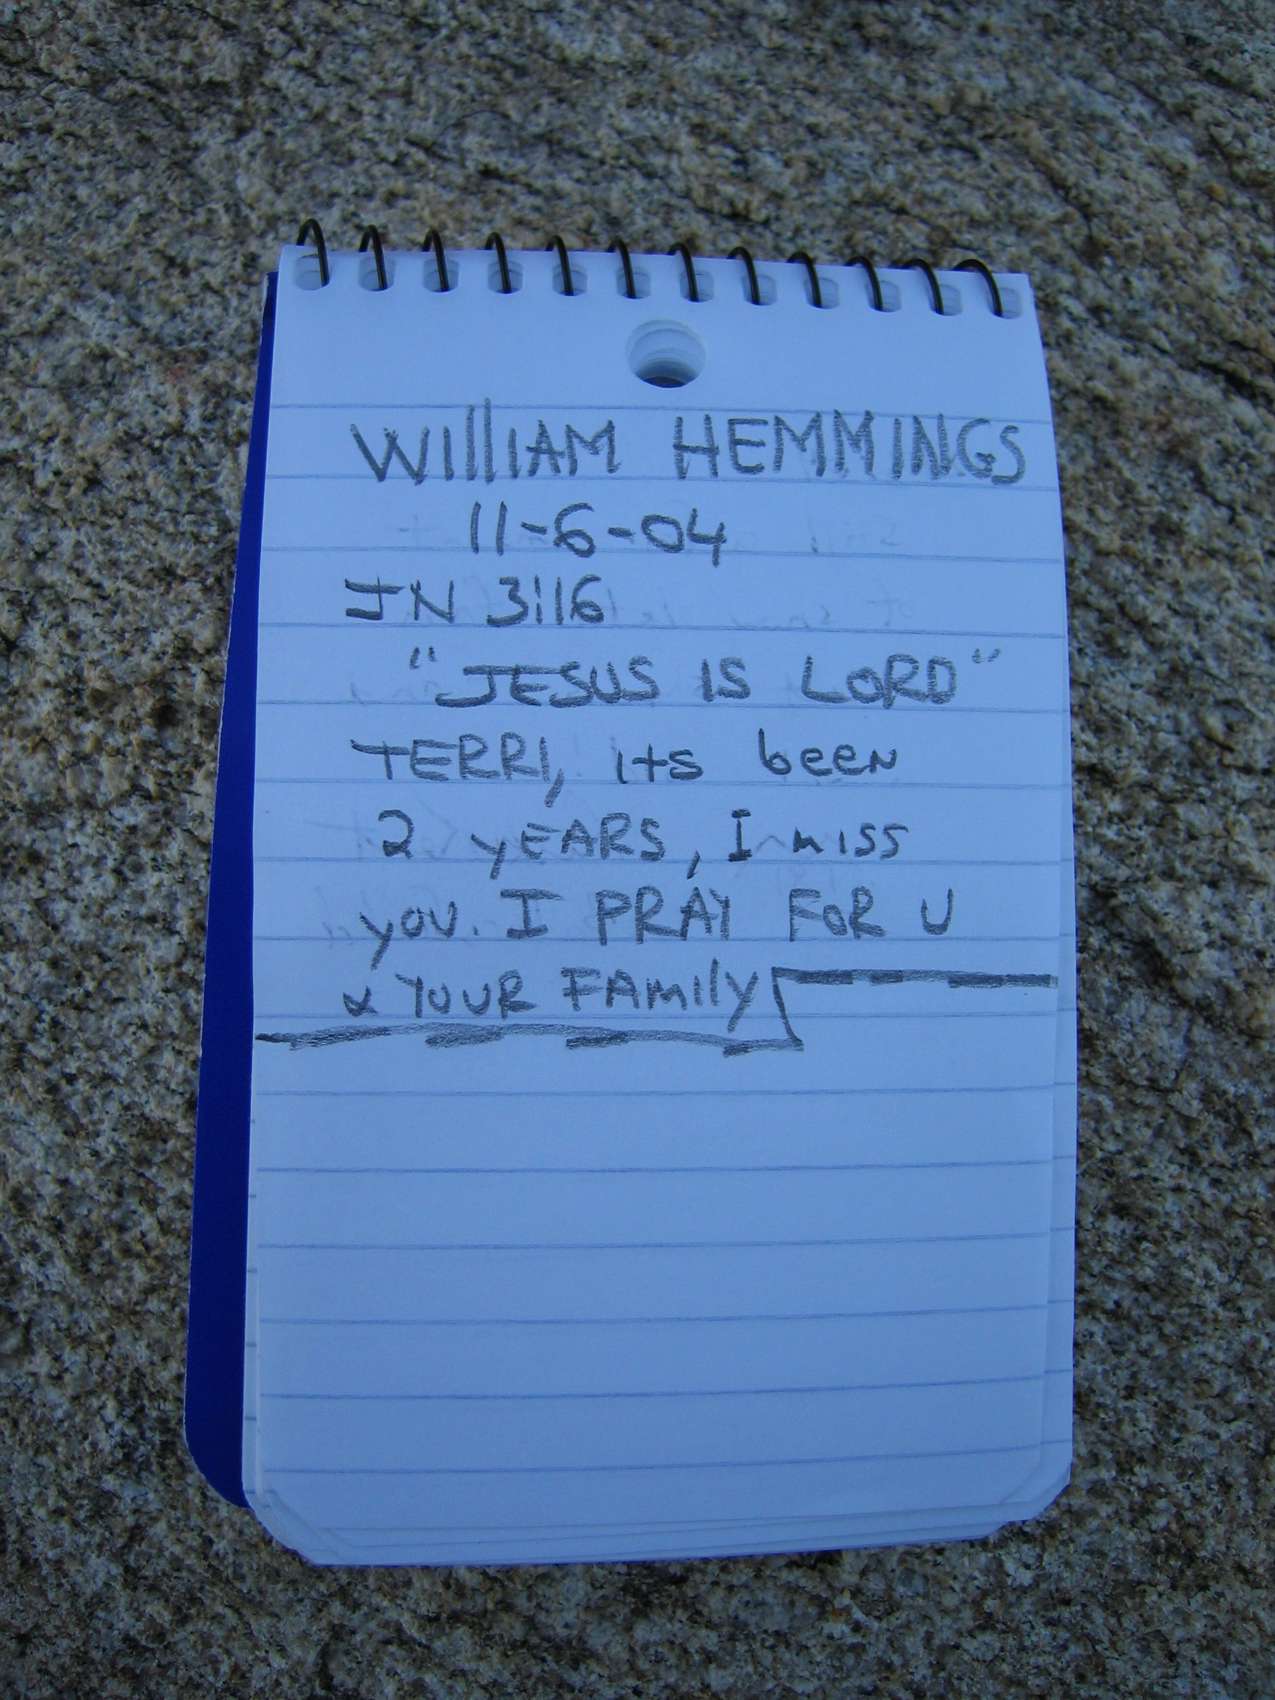 WIllIAM HEMMINGS
11-6-04
JN 3:16
"JESUS IS LORD"
TERRI, its been
2 YEARS, I miss
you. I PRAY FOR U
& YOUR FAMIlY